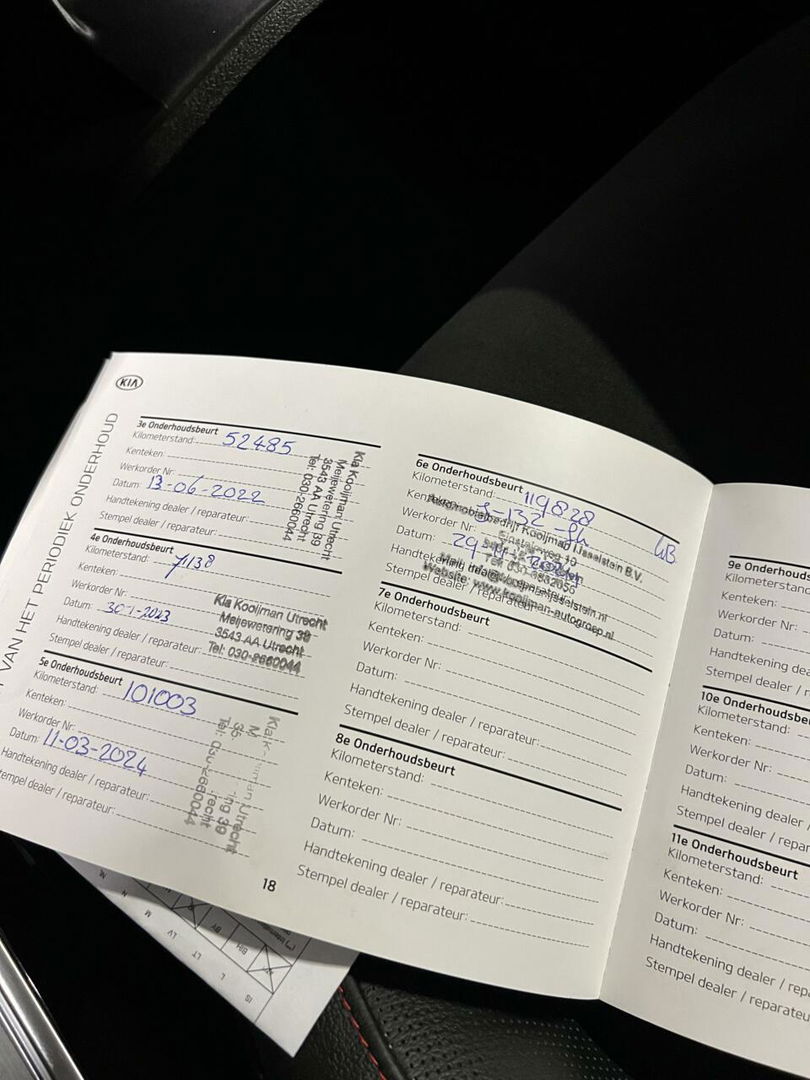 KIA
VAN HET PERIODIEK ONDERHOUD
3e Onderhoudsbeurt
Kilometerstand: 52485
Kenteken:
Werkorder Nr:
Datum: 13-06-2022
Handtekening dealer / reparateur:
Stempel dealer / reparateur:
Kia Kooijman Utrecht
Meijewetering 39
3543 AA Utrecht
Tel: 030-2660044
4e Onderhoudsbeurt
Kilometerstand:
Kenteken: 7138
Werkorder Nr:
Datum: 30-1-2023
Handtekening dealer / reparateur:
Stempel dealer / reparateur:
Kia Kooijman Utrecht
Meijewetering 39
3543 AA Utrecht
Tel: 030-2660044
5e Onderhoudsbeurt
Kilometerstand: 101003
Kenteken:
Werkorder Nr:
Datum: 11-03-2024
Handtekening dealer / reparateur:
Stempel dealer / reparateur:
Utrecht
39
Tel: 030-2660044
18
6e Onderhoudsbeurt
Kilometerstand: 119828
Kenteken:
Werkorder Nr:
Datum:
Stempel dealer / reparateur:
Kooijman IJsselstein B.V.
Website: www.kooijman-autogroep.nl
7e Onderhoudsbeurt
Kilometerstand:
Kenteken:
Werkorder Nr:
Datum:
Handtekening dealer / reparateur:
Stempel dealer / reparateur:
8e Onderhoudsbeurt
Kilometerstand:
Kenteken:
Werkorder Nr:
Datum:
Handtekening dealer / reparateur:
Stempel dealer / reparateur:
9e Onderhouds
Kilometerstand:
Kenteken:
Werkorder Nr:
Datum:
Handtekening dea
Stempel dealer / r
10e Onderhoudsbe
Kilometerstand:
Kenteken:
Werkorder Nr:
Datum:
Handtekening dealer /
Stempel dealer / repar
11e Onderhoudsbeurt
Kilometerstand:
Kenteken:
Werkorder Nr:
Datum:
Handtekening dealer / rep
Stempel dealer / reparate